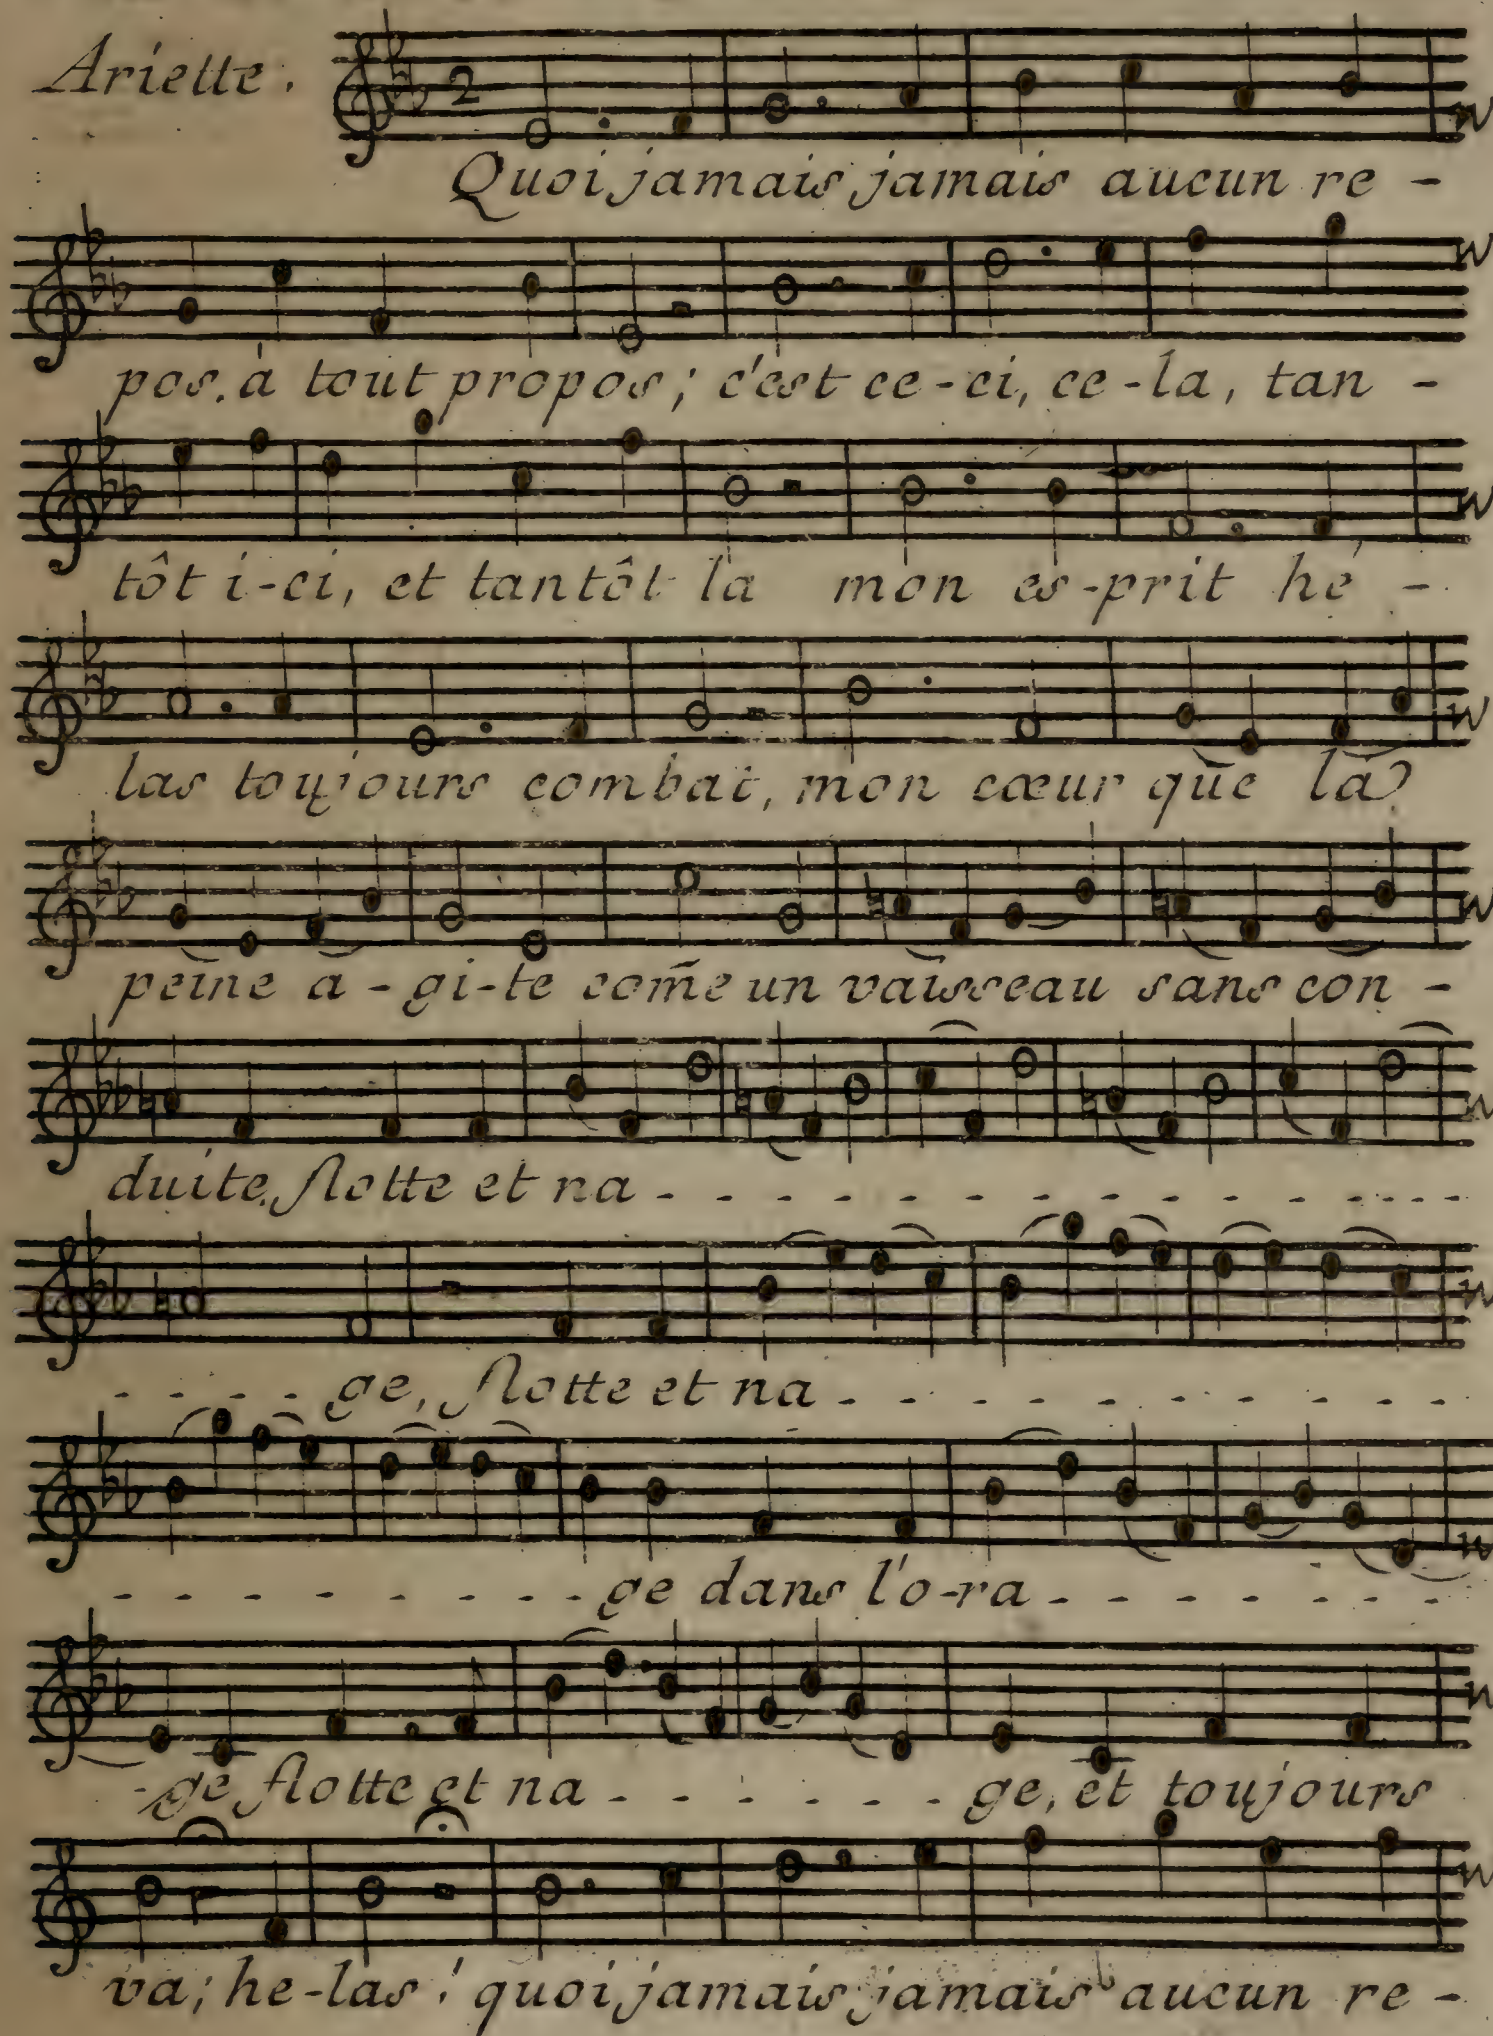 Ariette.
2
Quoi jamais jamais aucun re -
pos, à tout propos; c'est ce-ci, ce-la, tan -
tôt i-ci, et tantôt la mon es-prit hé -
las toujours combat, mon cœur que la
peine a - gi-te com̃e un vaisseau sans con -
duite, flotte et na - - - - - - - - - - - - - -
- - - - ge, flotte et na - - - - - - - - - -
- - - - - - - - ge dans l'o-ra - - - - - - -
-ge flotte et na - - - - - - ge, et toujours
va; he-las! quoi jamais jamais aucun re -